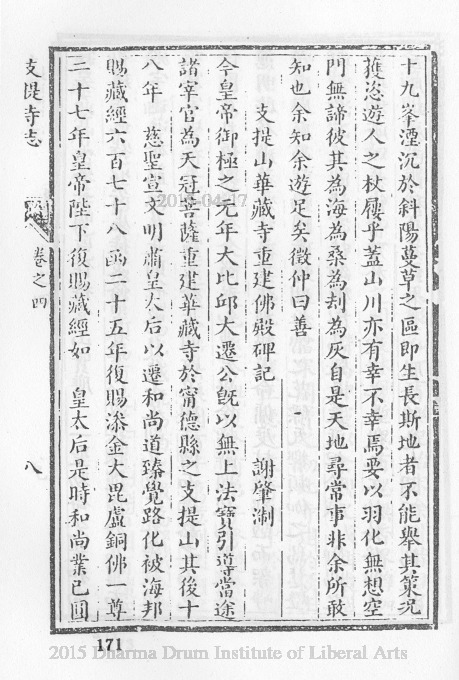 十九峯湮沉於斜陽蔓草之區即生長斯地者不能舉其策況
獲恣遊人之杖屨乎蓋山川亦有幸不幸焉要以羽化無想空
門無諦彼其為海為桑為刦為灰自是天地尋常事非余所敢
知也余知余遊足矣徵仲曰善
支提山華藏寺重建佛殿碑記
謝肇淛
今皇帝御極之元年大比邱大遷公旣以無上法寶引導當途
諸宰官為天冠菩薩重建華藏寺於甯德縣之支提山其後十
八年 慈聖宣文明肅皇太后以遷和尚道臻覺路化被海邦
賜藏經六百七十八函二十五年復賜滲金大毘盧銅佛一尊
二十七年皇帝陛下復賜藏經如 皇太后是時和尚業已圓
支提寺志
卷之四
八
171
2015 Dharma Drum Institute of Liberal Arts